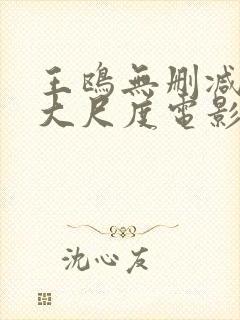 王鴎無刪減
大尺度電影
沈心友